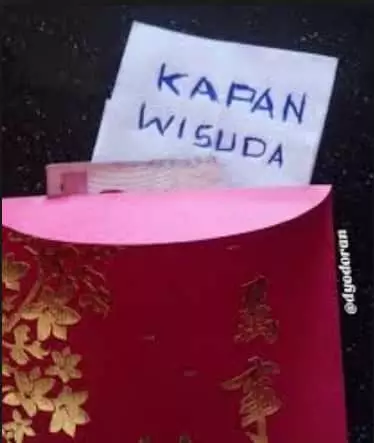 KAPAN
WISUDA
@dyodoran
萬事